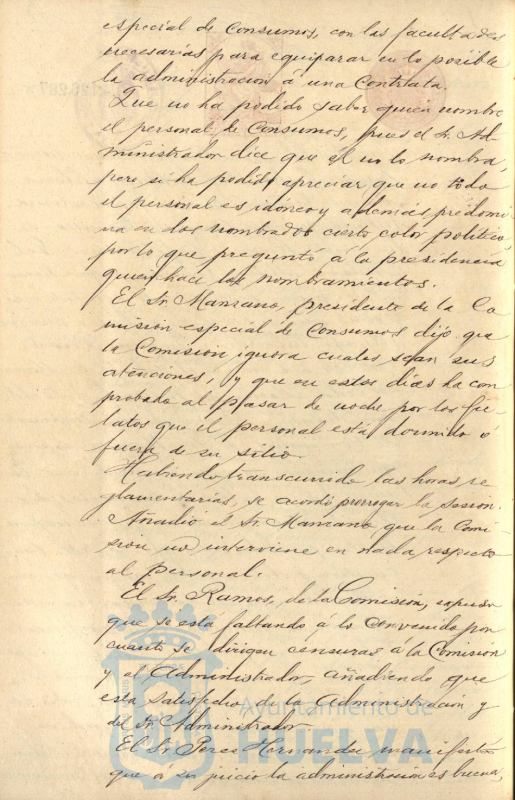 especial de Consumos, con las facultades
necesarias para equiparar en lo posible
la administracion á una Contrata.
Que no ha podido saber quien nombre
el personal de Consumos, pues el Sr. Ad-
ministrador dice que él no lo nombra,
pero si ha podido apreciar que no todo
el personal es idóneo y además predomi
na en los nombrados cierto color politico,
por lo que preguntó á la presidencia
quien hace los nombramientos.
El Sr. Manzano, presidente de la Co
misión especial de Consumos dijo que
la Comisión ignora cuales sean sus
atenciones, y que en estos dias ha com
probado al pasar de noche por los fie-
latos que el personal está dormido ó
fuera de su sitio.
Habiendo transcurrido las horas re
glamentarias, se acordó prorrogar la sesión.
Añadió el Sr. Manzano, que la Comi-
sion no interviene en nada respecto
al personal.
El Sr. Ramos, de la Comisión, expuso
que se está faltando á lo convenido por
cuanto se dirigen censuras á la Comision
y al Administrador, añadiendo que
esta satisfecho de la administración y
del Sr. Administrador
El Sr. Perez Hernandez manifestó
que á su juicio la administración es buena,
Ayuntamiento de
HUELVA